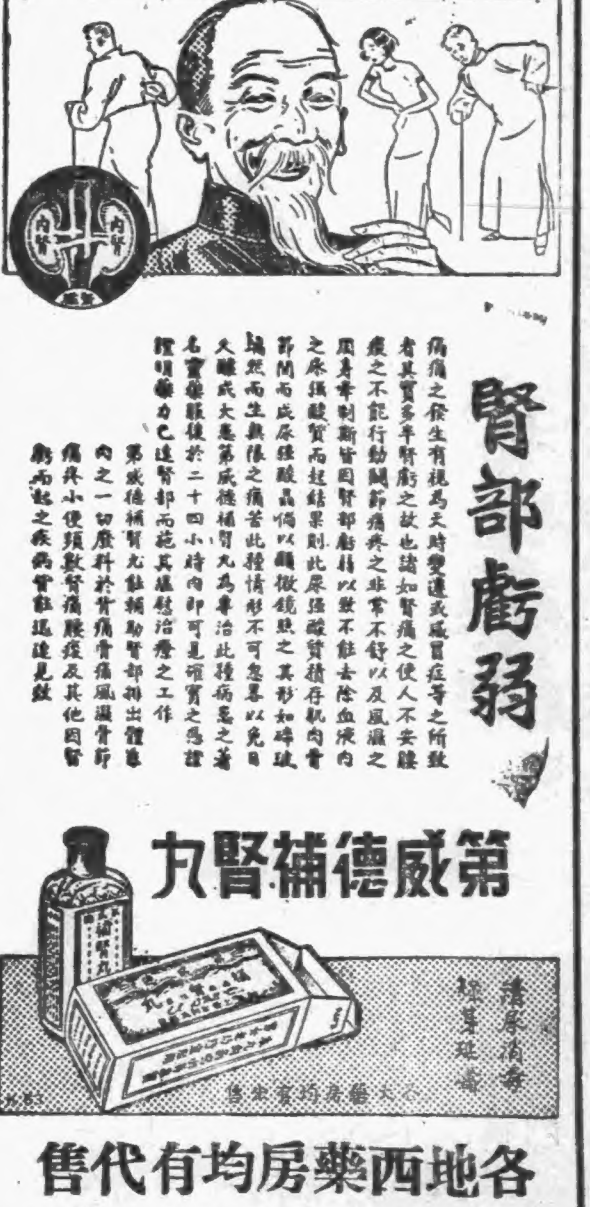 內腎
內腎
腎部虧弱
痛之發生有視為天時變遷或感冒症等之所致
者其實多半腎虧之故也諸如腎痛之使人不安腰
痠之不能行動關節痛疼之非常不舒以及風濕之
周身牽制斯皆因腎部虧弱以致不能去除血液內
之尿强酸質而起結果則此尿强酸質積存肌肉骨
節間而成尿强酸晶倘以顯微鏡照之其形如碎玻
璃然而生無限之痛苦此種情形不可忽畧以免日
久釀成大患第威德補腎丸為專治此種病患之著
名靈藥服後於二十四小時內即可見確實之憑證
證明藥力已達腎部而施其撫慰治療之工作
第威德補腎丸能輔助腎部排出體
內之一切廢料於背痛骨痛風濕骨節
痛疼小便頻數腎痛腰痠及其他因腎
虧而起之疾病皆能迅速見效
第威德補腎丸
補腎丸
清尿消毒
延壽
各大藥房均有出售
各地西藥房均有代售